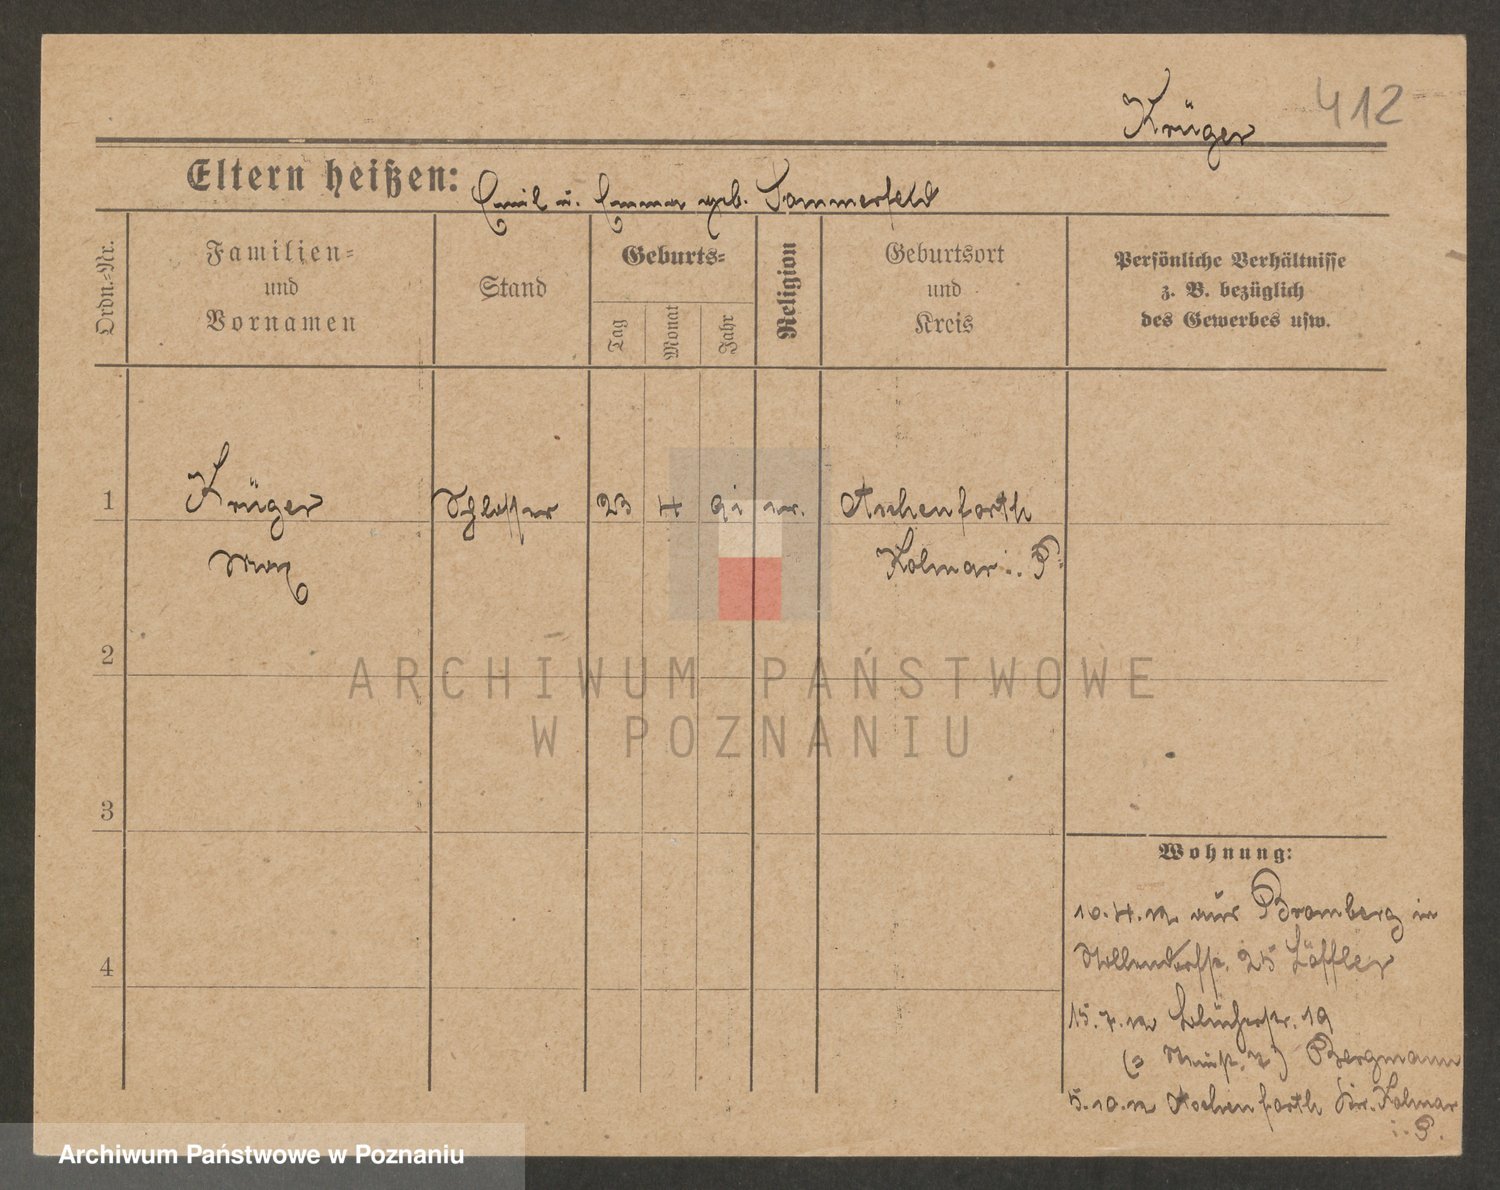 412
Krüger
Eltern heißen: Emil u. Emma geb. Sommerfeld
Ordn.-Nr.
Familien-
und
Vornamen
Stand
Geburts-
Tag
Monat
Jahr
Religion
Geburtsort
und
Kreis
Persönliche Verhältnisse
z. B. bezüglich
des Gewerbes usw.
1 Krüger Schlosser 23 4 91 Aschenforth
Max Kolmar i. P.
2
3
4
Wohnung:
10.4.12 aus Bromberg in
Nollendorfstr. 25 Löffler
15.7.12 Blücherstr. 19
Bergmann
5.10.12 Aschenforth Kr. Kolmar
i. P.
ARCHIWUM PAŃSTWOWE
W POZNANIU
Archiwum Państwowe w Poznaniu